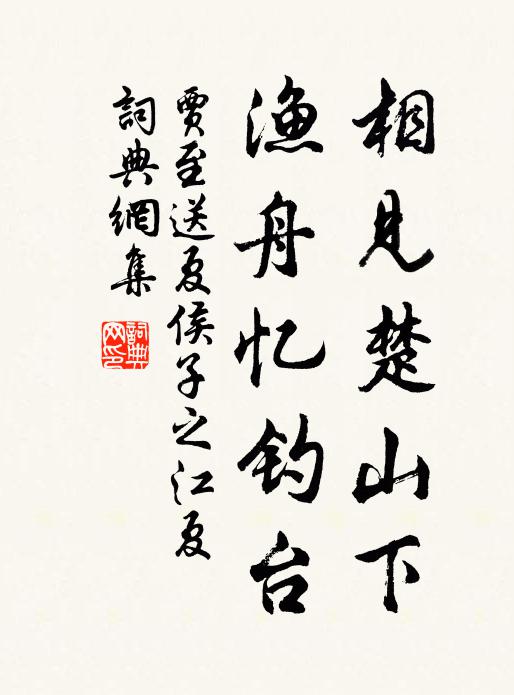 相见楚山下
渔舟忆钓台
賈至送夏侯子之江夏
詞典網集
詞典網印